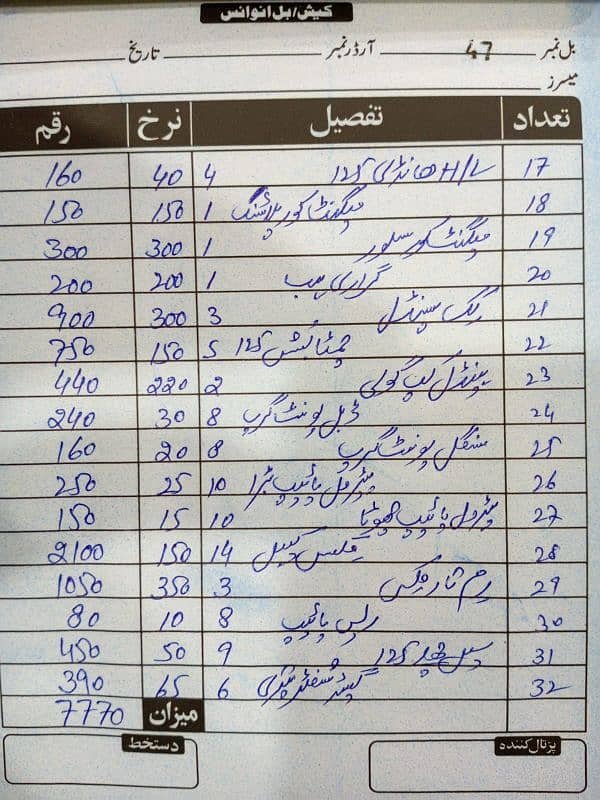 کیش/بل انوائس
بل نمبر 47 آرڈر نمبر تاریخ
میسرز
تعداد تفصیل نرخ رقم
17 H/L ھانڈی 125 4 40 160
18 میگنٹ کور پلاسٹک 1 150 150
19 میگنٹ کور سلور 1 300 300
20 گراری پمپ 1 200 200
21 کک سپنڈل 3 300 900
22 چمٹا بُش 125 5 150 750
23 ہینڈل کپ گولی 2 220 440
24 ڈبل پونٹ گرپ 8 30 240
25 سنگل پونٹ گرپ 8 20 160
26 پٹرول پائیپ بڑا 10 25 250
27 پٹرول پائیپ چھوٹا 10 15 150
28 کیبل 14 150 2100
29 رم 3 350 1050
30 پائیپ 8 10 80
31 125 9 50 450
32 6 65 390
میزان 7770
پڑتال کنندہ دستخط